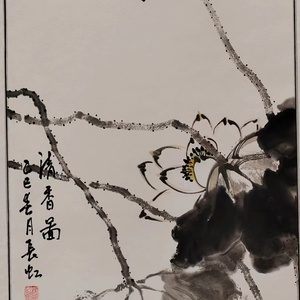 清香图
乙巳春月长虹